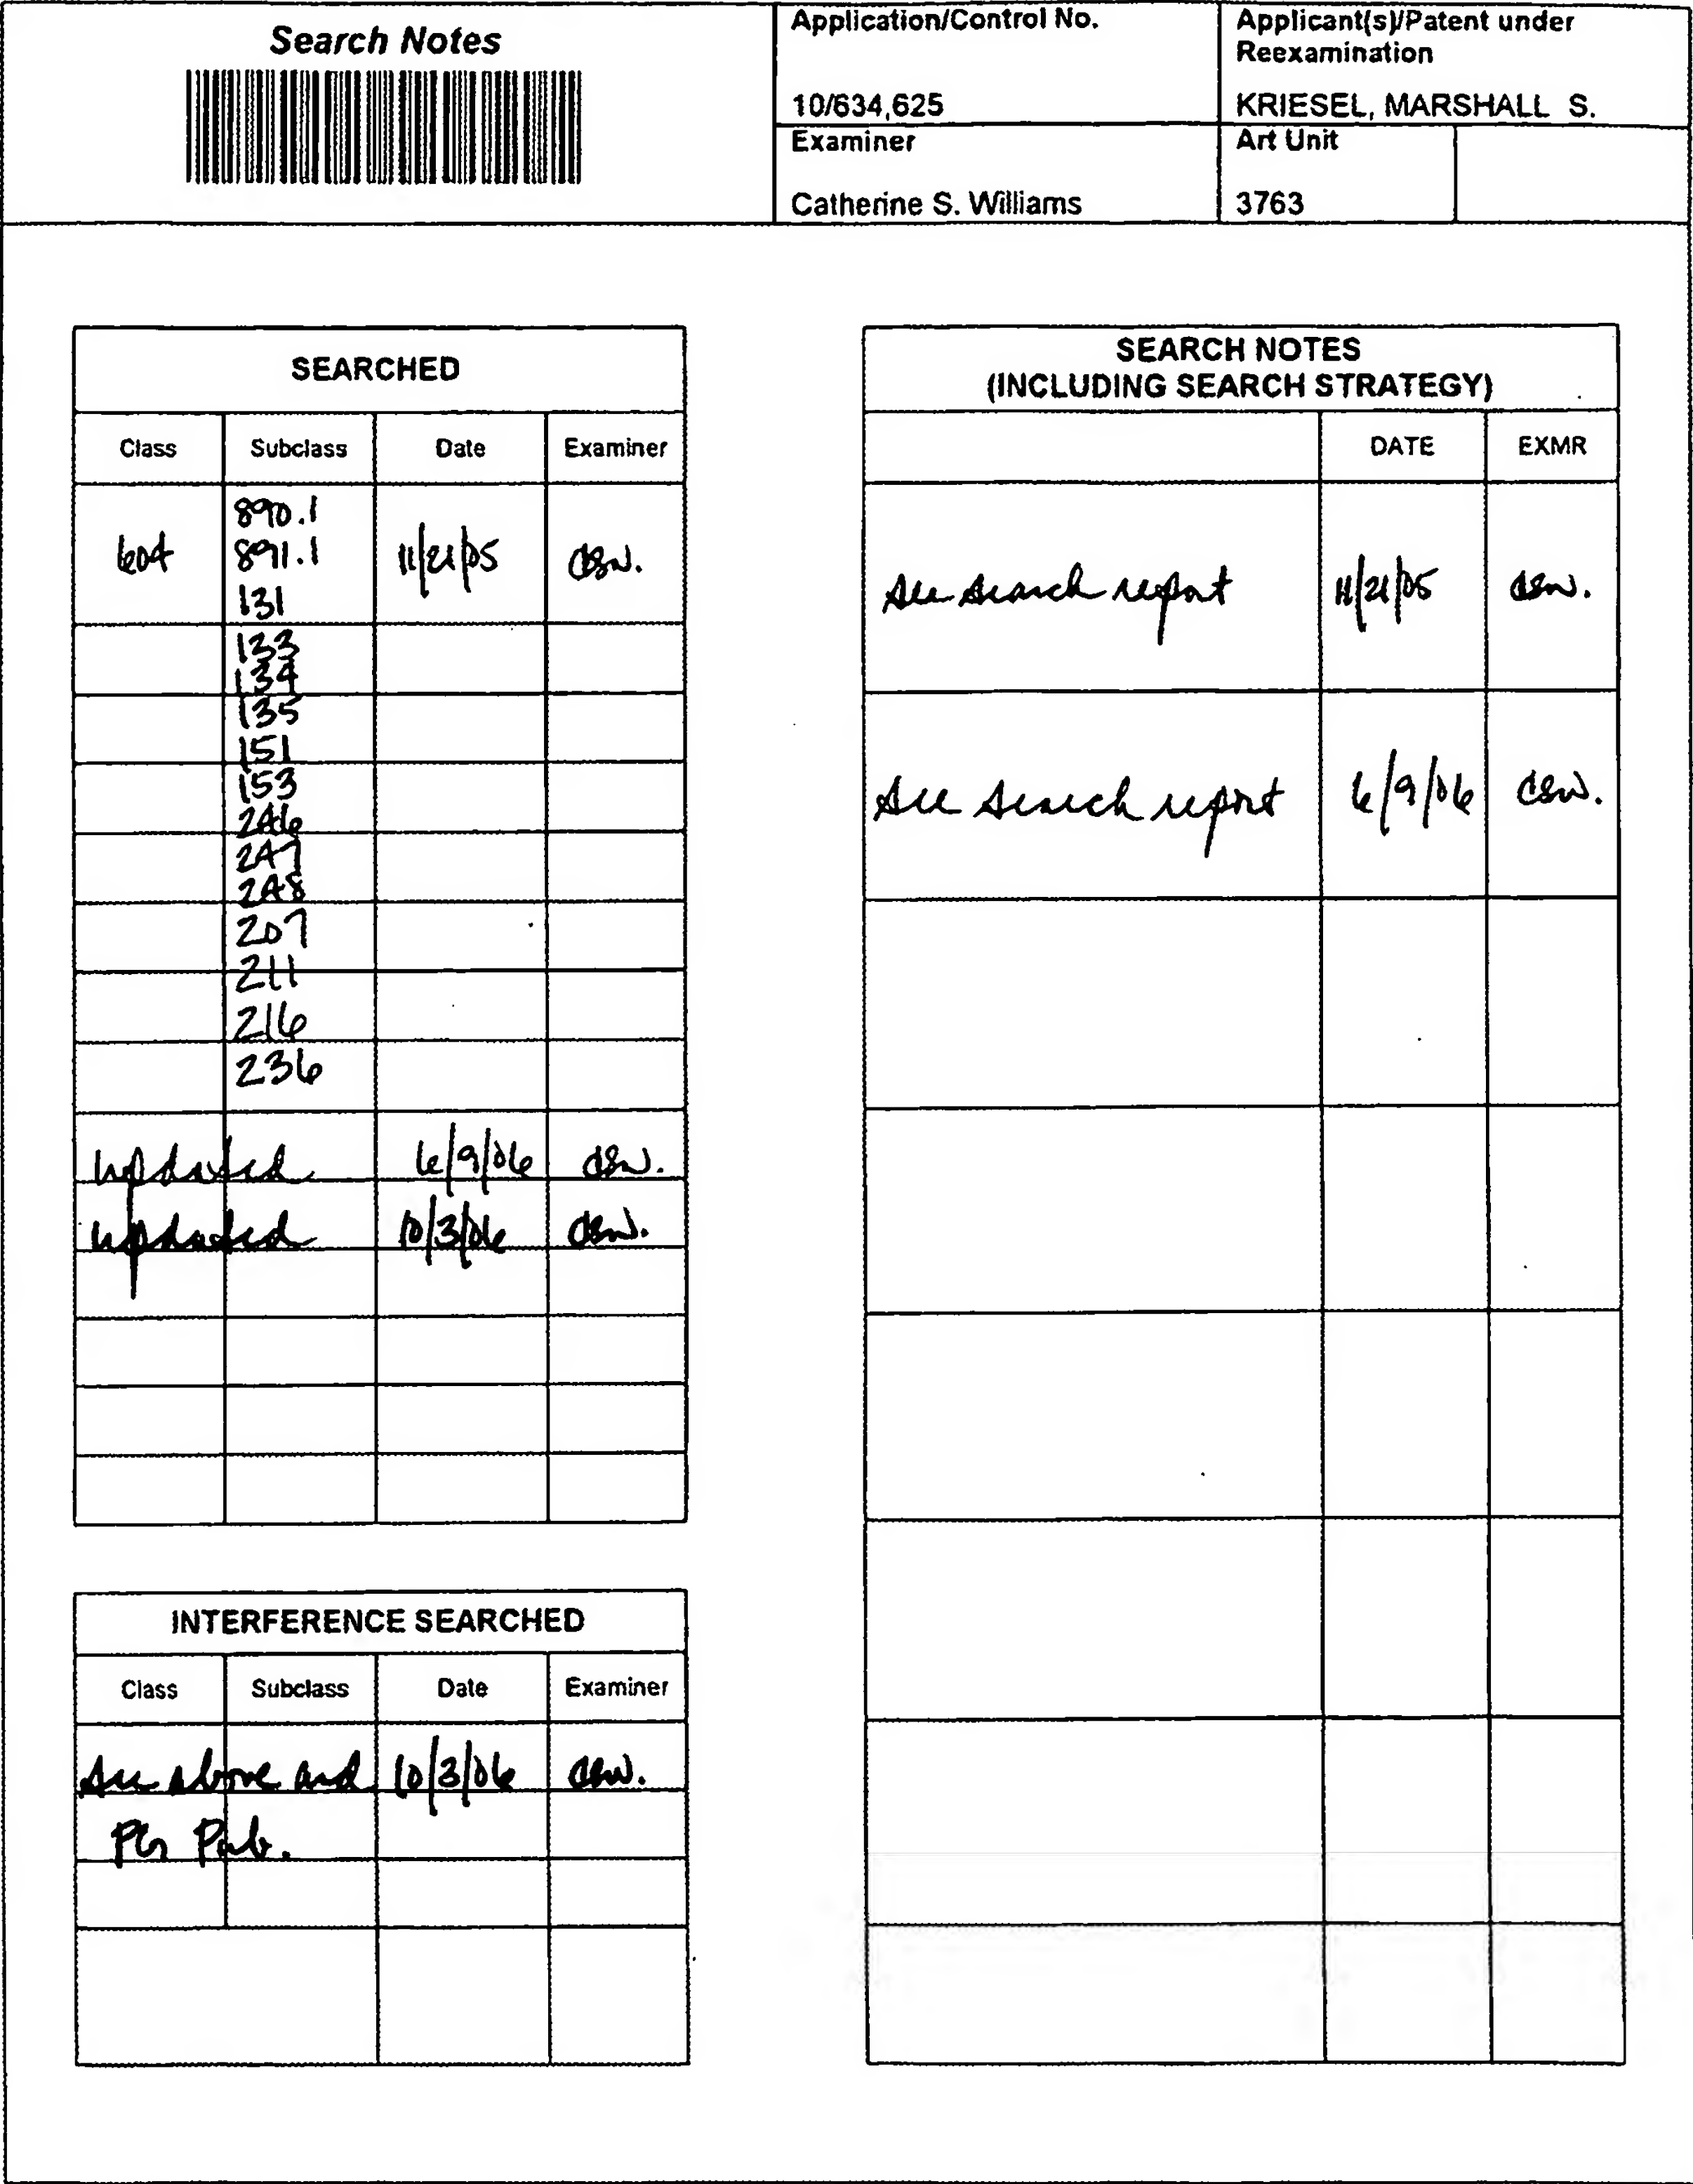 Search Notes
Application/Control No.
10/634,625
Applicant(s)/Patent under
Reexamination
KRIESEL, MARSHALL S.
Examiner
Catherine S. Williams
Art Unit
3763
SEARCHED
Class Subclass Date Examiner
890.1
604 891.1 11/21/05 CSW.
131
133
134
135
151
153
246
247
248
207
211
216
236
updated 6/9/06 CSW.
updated 10/3/06 CSW.
INTERFERENCE SEARCHED
Class Subclass Date Examiner
See above and 10/3/06 CSW.
PG Pub.
SEARCH NOTES
(INCLUDING SEARCH STRATEGY)
DATE EXMR
See search report 11/21/05 CSW.
See search report 6/9/06 CSW.